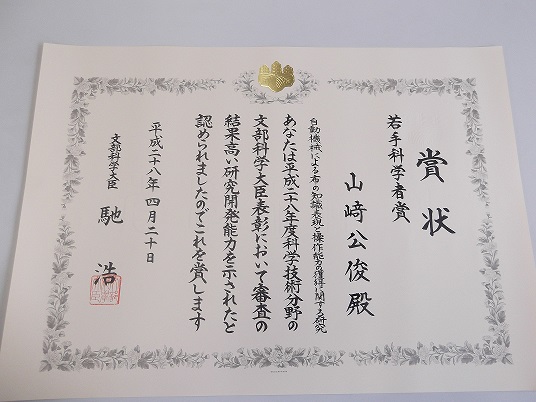 賞状
若手科学者賞
山﨑公俊殿
自動機械による布の知識表現と操作能力の獲得に関する研究
あなたは平成二十八年度科学技術分野の
文部科学大臣表彰において審査の
結果高い研究開発能力を示されたと
認められましたのでこれを賞します
平成二十八年四月二十日
文部科学大臣 馳浩